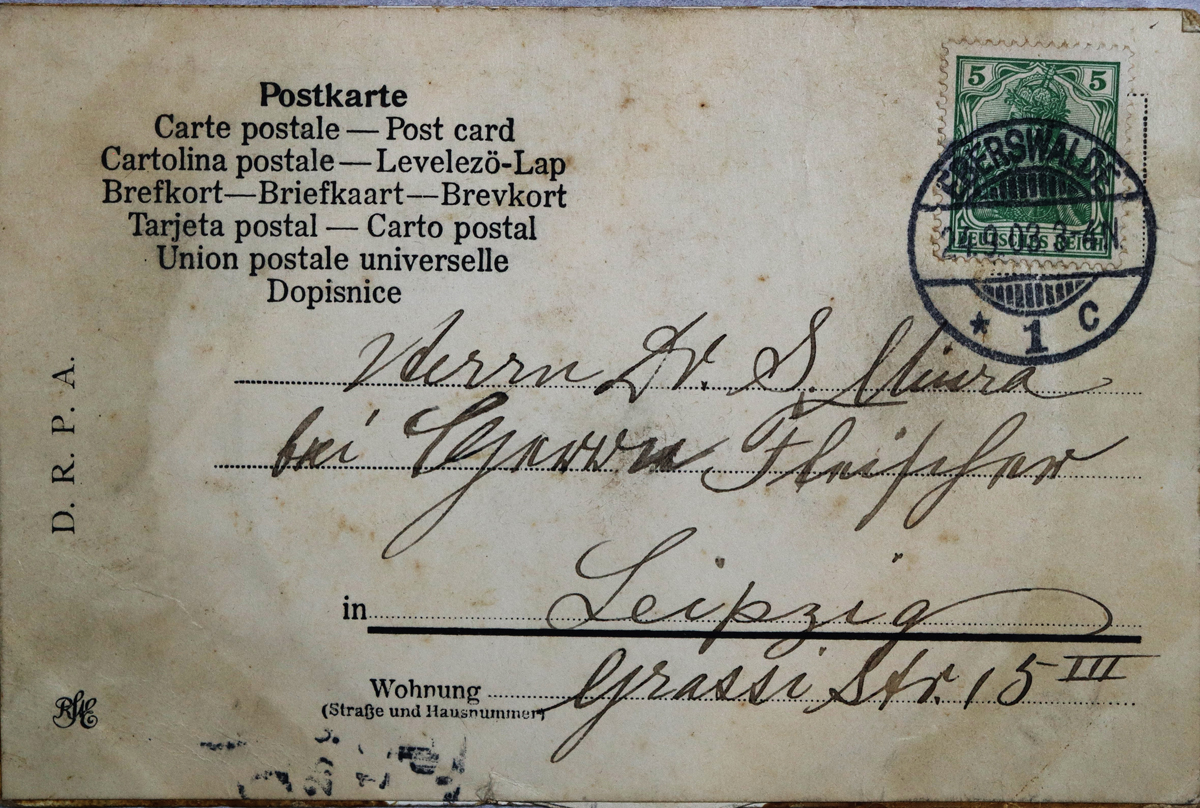 Postkarte
Carte postale — Post card
Cartolina postale — Levelezö-Lap
Brefkort—Briefkaart—Brevkort
Tarjeta postal — Carto postal
Union postale universelle
Dopisnice
5 5
DEUTSCHES REICH
EBERSWALDE
24.9.03.3-4N
* 1 c
D. R. P. A.
Herrn Dr. S. Miura
bei Herrn Fleischer
in Leipzig
Wohnung Grassi Str. 15 III
(Straße und Hausnummer)